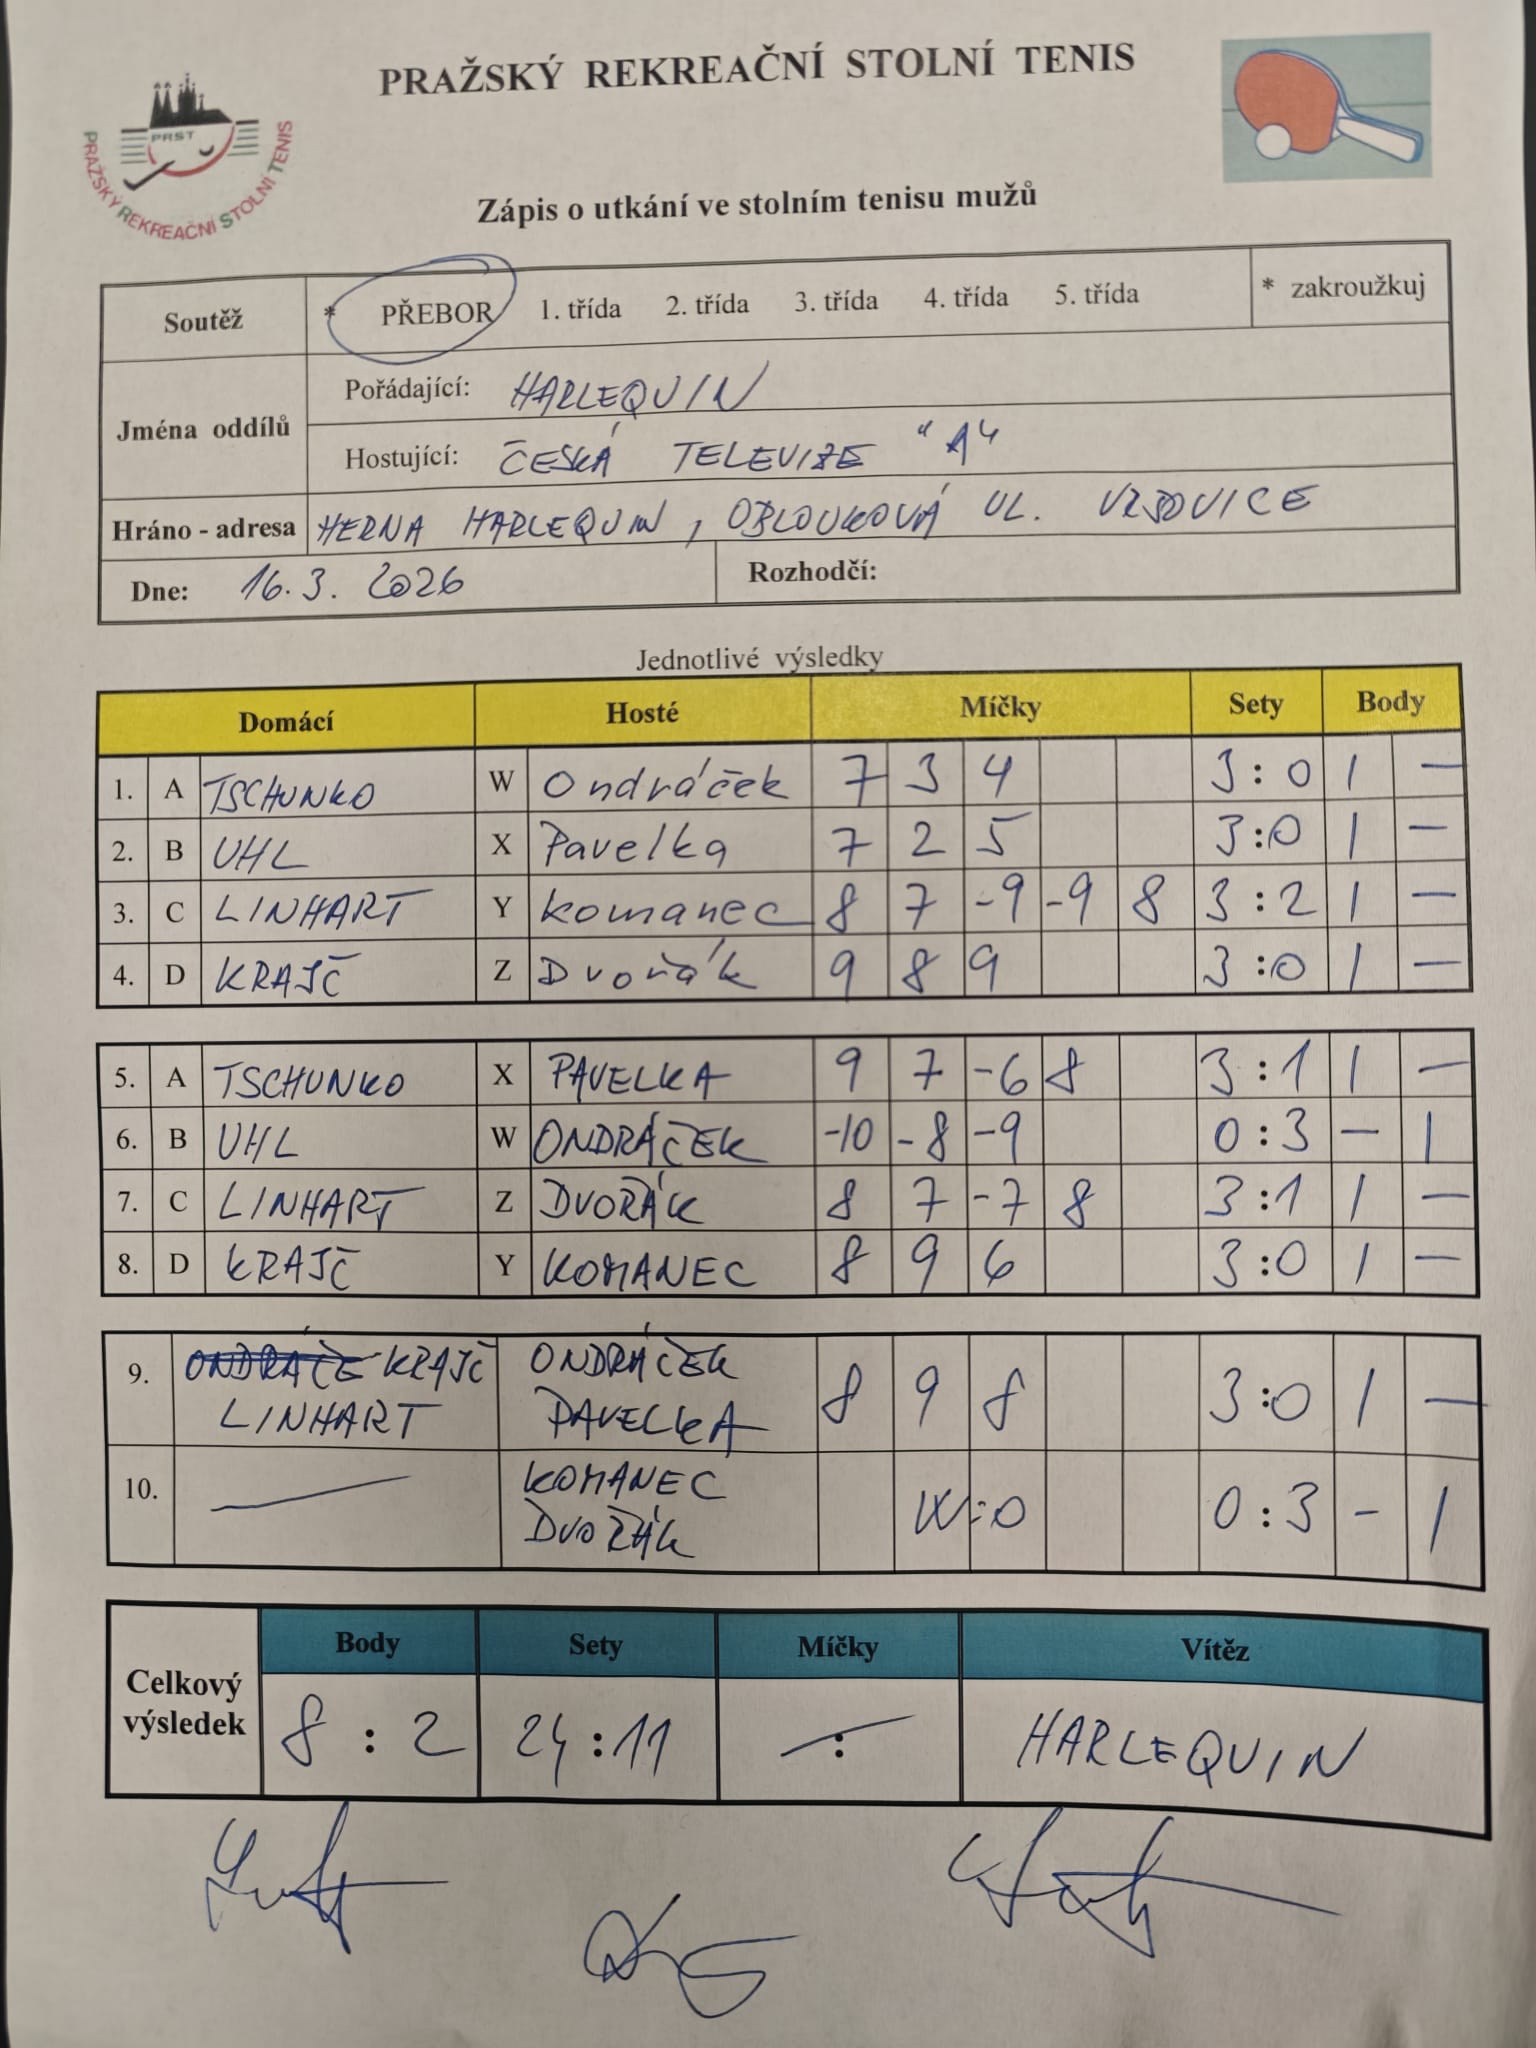 PRAŽSKÝ REKREAČNÍ STOLNÍ TENIS
PRST
PRAŽSKÝ REKREAČNÍ STOLNÍ TENIS
Zápis o utkání ve stolním tenisu mužů
Soutěž * PŘEBOR 1. třída 2. třída 3. třída 4. třída 5. třída * zakroužkuj
Jména oddílů
Pořádající: HARLEQUIN
Hostující: ČESKÁ TELEVIZE "A"
Hráno - adresa HERNA HARLEQUIN, OBLOUKOVÁ UL. VRŠOVICE
Dne: 16.3. 2026 Rozhodčí:
Jednotlivé výsledky
Domácí Hosté Míčky Sety Body
1. A TSCHUNKO W Ondráček 7 3 4 3:0 1 –
2. B UHL X Pavelka 7 2 5 3:0 1 –
3. C LINHART Y Komanec 8 7 -9 -9 8 3:2 1 –
4. D KRAJČ Z Dvořák 9 8 9 3:0 1 –
5. A TSCHUNKO X PAVELKA 9 7 -6 8 3:1 1 –
6. B UHL W ONDRÁČEK -10 -8 -9 0:3 – 1
7. C LINHART Z DVOŘÁK 8 7 -7 8 3:1 1 –
8. D KRAJČ Y KOMANEC 8 9 6 3:0 1 –
9. ONDRÁČE KRAJČ ONDRÁČEK
LINHART PAVELKA 8 9 8 3:0 1 –
10. — KOMANEC
DVOŘÁK W:0 0:3 - 1
Celkový výsledek
Body Sety Míčky Vítěz
8 : 2 24:11 : HARLEQUIN